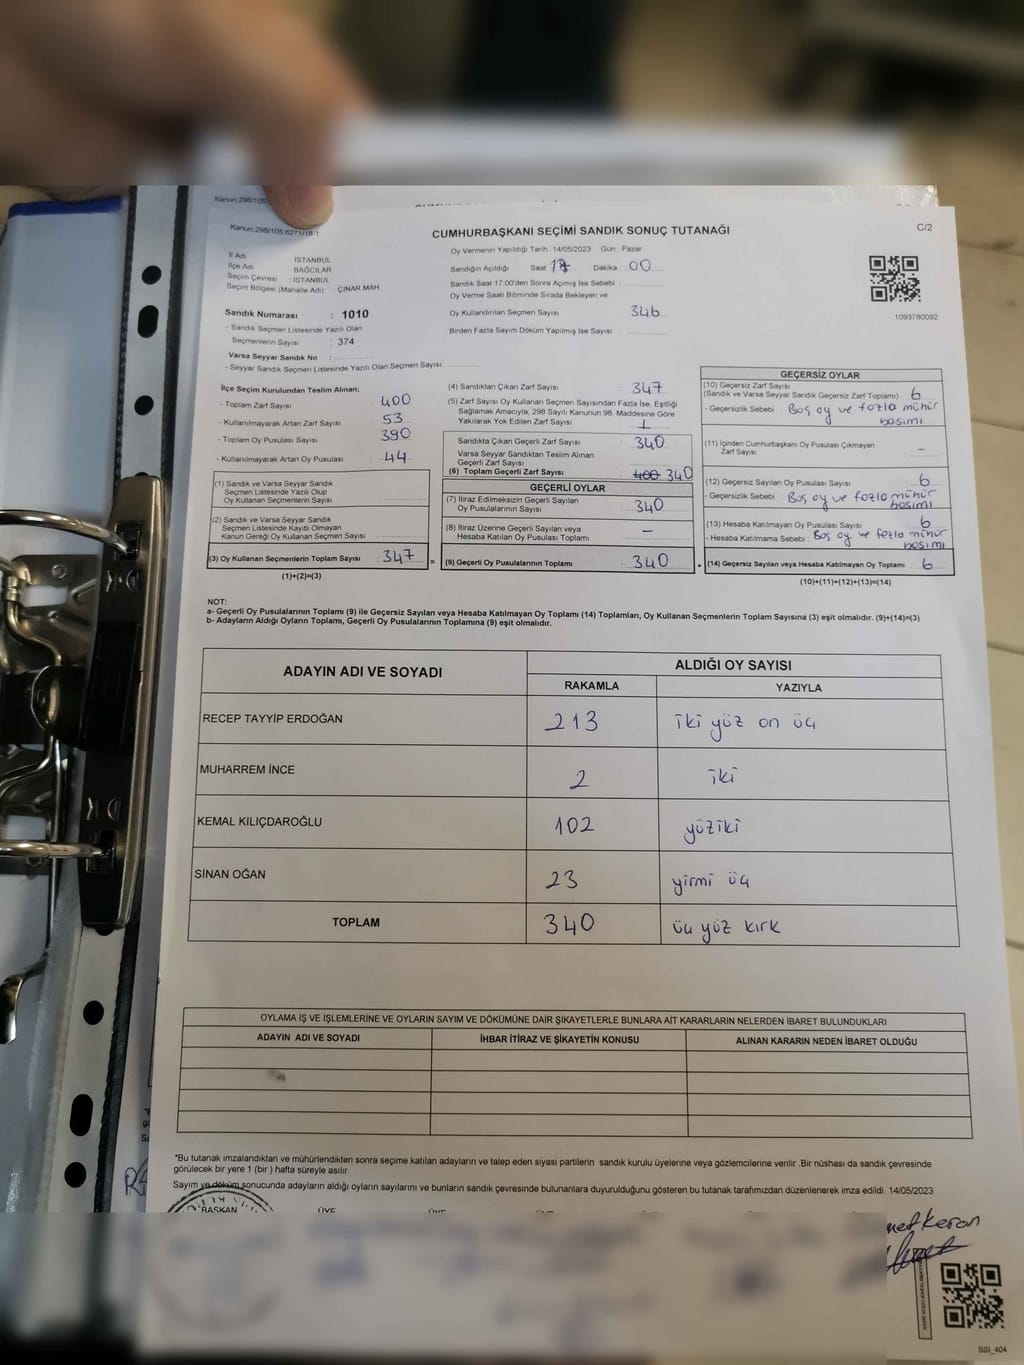 Kanun:298/105
Kanun:298/105.627
CUMHURBAŞKANI SEÇİMİ SANDIK SONUÇ TUTANAĞI
C/2
İl Adı : İSTANBUL
İlçe Adı : BAĞCILAR
Seçim Çevresi : İSTANBUL
Seçim Bölgesi (Mahalle Adı) : ÇINAR MAH
Oy Vermenin Yapıldığı Tarih :14/05/2023 Gün : Pazar
Sandığın Açıldığı Saat : 17 Dakika : 00
Sandık Saat 17:00'den Sonra Açımış İse Sebebi :
Oy Verme Saati Bitiminde Sırada Bekleyen ve
Oy Kullandırılan Seçmen Sayısı : 346
Birden Fazla Sayım Döküm Yapılmış İse Sayısı :
1093780092
Sandık Numarası : 1010
- Sandık Seçmen Listesinde Yazılı Olan
Seçmenlerin Sayısı : 374
Varsa Seyyar Sandık No :
- Seyyar Sandık Seçmen Listesinde Yazılı Olan Seçmen Sayısı:
İlçe Seçim Kurulundan Teslim Alınan;
- Toplam Zarf Sayısı : 400
- Kullanılmayarak Artan Zarf Sayısı : 53
- Toplam Oy Pusulası Sayısı : 390
- Kullanılmayarak Artan Oy Pusulası : 44
(1) Sandık ve Varsa Seyyar Sandık
Seçmen Listesinde Yazılı Olup
Oy Kullanan Seçmenlerin Sayısı :
(2) Sandık ve Varsa Seyyar Sandık
Seçmen Listesinde Kayıtlı Olmayan
Kanun Gereği Oy Kullanan Seçmen Sayısı :
(3) Oy Kullanan Seçmenlerin Toplam Sayısı : 347
(1)+(2)=(3)
(4) Sandıktan Çıkan Zarf Sayısı : 347
(5) Zarf Sayısı Oy Kullanan Seçmen Sayısından Fazla İse, Eşitliği
Sağlamak Amacıyla, 298 Sayılı Kanunun 98. Maddesine Göre
Yakılarak Yok Edilen Zarf Sayısı : 1
Sandıkta Çıkan Geçerli Zarf Sayısı : 340
Varsa Seyyar Sandıktan Teslim Alınan
Geçerli Zarf Sayısı :
(6) Toplam Geçerli Zarf Sayısı : 400 340
GEÇERLİ OYLAR
(7) İtiraz Edilmeksizin Geçerli Sayılan
Oy Pusulalarının Sayısı : 340
(8) İtiraz Üzerine Geçerli Sayılan veya
Hesaba Katılan Oy Pusulası Toplamı : –
= (9) Geçerli Oy Pusulalarının Toplamı : 340
GEÇERSİZ OYLAR
(10) Geçersiz Zarf Sayısı
(Sandık ve Varsa Seyyar Sandık Geçersiz Zarf Toplamı) : 6
- Geçersizlik Sebebi : Boş oy ve fazla mühür
basımı
(11) İçinden Cumhurbaşkanı Oy Pusulası Çıkmayan
Zarf Sayısı : –
(12) Geçersiz Sayılan Oy Pusulası Sayısı : 6
- Geçersizlik Sebebi : Boş oy ve fazla mühür
basımı
(13) Hesaba Katılmayan Oy Pusulası Sayısı : 6
- Hesaba Katılmama Sebebi : Boş oy ve fazla mühür
basımı
+ (14) Geçersiz Sayılan veya Hesaba Katılmayan Oy Toplamı : 6
(10)+(11)+(12)+(13)=(14)
NOT:
a- Geçerli Oy Pusulalarının Toplamı (9) ile Geçersiz Sayılan veya Hesaba Katılmayan Oy Toplamı (14) Toplamları, Oy Kullanan Seçmenlerin Toplam Sayısına (3) eşit olmalıdır. (9)+(14)=(3)
b- Adayların Aldığı Oyların Toplamı, Geçerli Oy Pusulalarının Toplamına (9) eşit olmalıdır.
ADAYIN ADI VE SOYADI
ALDIĞI OY SAYISI
RAKAMLA YAZIYLA
RECEP TAYYİP ERDOĞAN 213 iki yüz on üç
MUHARREM İNCE 2 iki
KEMAL KILIÇDAROĞLU 102 yüziki
SİNAN OĞAN 23 yirmi üç
TOPLAM 340 üç yüz kırk
OYLAMA İŞ VE İŞLEMLERİNE VE OYLARIN SAYIM VE DÖKÜMÜNE DAİR ŞİKAYETLERLE BUNLARA AİT KARARLARIN NELERDEN İBARET BULUNDUKLARI
ADAYIN ADI VE SOYADI İHBAR İTİRAZ VE ŞİKAYETİN KONUSU ALINAN KARARIN NEDEN İBARET OLDUĞU
*Bu tutanak imzalandıktan ve mühürlendikten sonra seçime katılan adayların ve talep eden siyasi partilerin sandık kurulu üyelerine veya gözlemcilerine verilir .Bir nüshası da sandık çevresinde
görülecek bir yere 1 (bir ) hafta süreyle asılır.
Sayım ve döküm sonucunda adayların aldığı oyların sayılarını ve bunların sandık çevresinde bulunanlara duyurulduğunu gösteren bu tutanak tarafımızdan düzenlenerek imza edildi. 14/05/2023
BAŞKAN ÜYE ÜYE ÜYE ÜYE
SSI_404